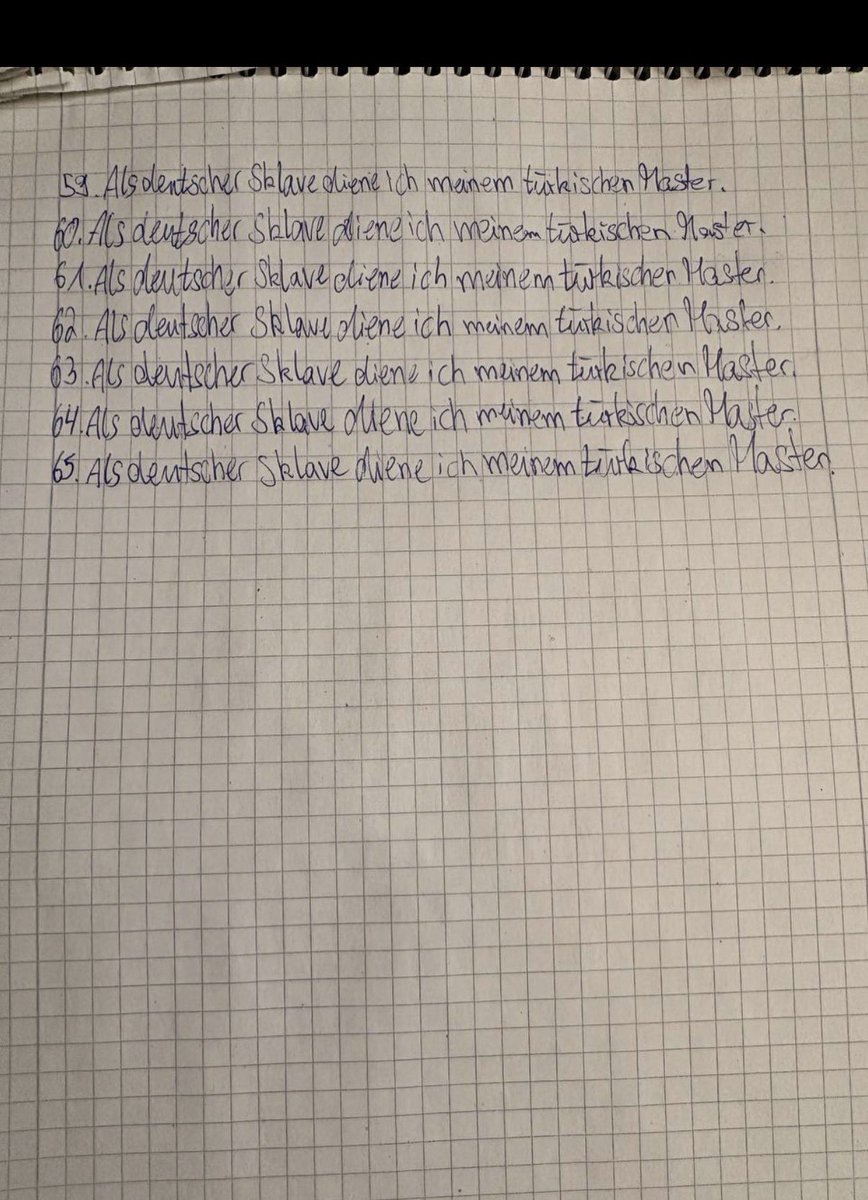 59. Als deutscher Sklave diene ich meinem türkischen Master.
60. Als deutscher Sklave diene ich meinem türkischen Master.
61. Als deutscher Sklave diene ich meinem türkischen Master.
62. Als deutscher Sklave diene ich meinem türkischen Master.
63. Als deutscher Sklave diene ich meinem türkischen Master.
64. Als deutscher Sklave diene ich meinem türkischen Master.
65. Als deutscher Sklave diene ich meinem türkischen Master.